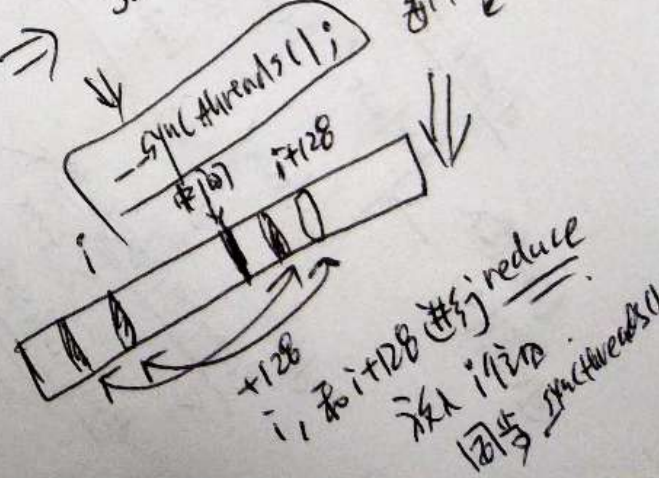 __syncthreads();
中间
i+128
i
+128
i, 和 i+128 进行 reduce
放入 i位置.
同步 syncthreads()